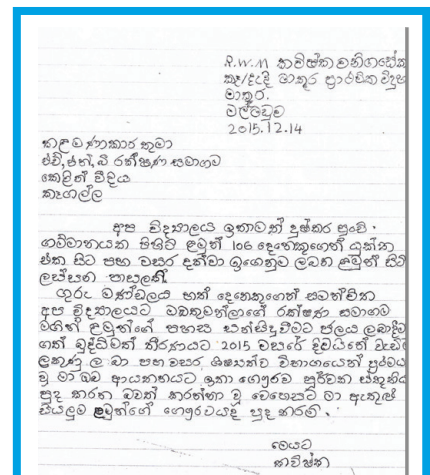 R.W.M කවිෂ්ක වනිගසේක
කෑ/දැදි මාතුර ප්‍රාථමික විද්‍යා
මාතුර.
2015.12.14
කළමණාකාර තුමා
එච්, එන්, බී රක්ෂණ සමාගම
වීදිය
කෑගල්ල
අප විද්‍යාලය ඉතාමත් දුෂ්කර පුංචි
ගම්මානයක පිහිටි ළමුන් 106 දෙනෙකුගෙන් යුක්ත
එක සිට පහ වසර දක්වා ඉගෙනුම ලබන ළමුන් සිටි
ලස්සන පාසලකි.
ගුරු මණ්ඩලය හත් දෙනෙකුගෙන් සමන්විත
අප විද්‍යාලයට ඔබතුමන්ලාගේ රක්ෂණ සමාගම
මගින් ළමුන්ගේ පහසු ජලය ලබාදීම
ගත් බුද්ධිමත් තීරණයට 2015 වසරේ දිවයිනේ වැඩි
ලකුණු ල බා පහ වසර ශිෂ්‍යත්ව විභාගයෙන් ප්‍රථමය
වූ මා ඔබ ආයතනයට ඉතා ගෞරව පූර්වක ස්තුතිය
පුද කරන බවත් කරන්නා වූ මෙහෙයට මා ඇතුළු
සියලුම ළමුන්ගේ ගෞරවයද පුද කරමි.
මෙයට
කවිෂ්ක